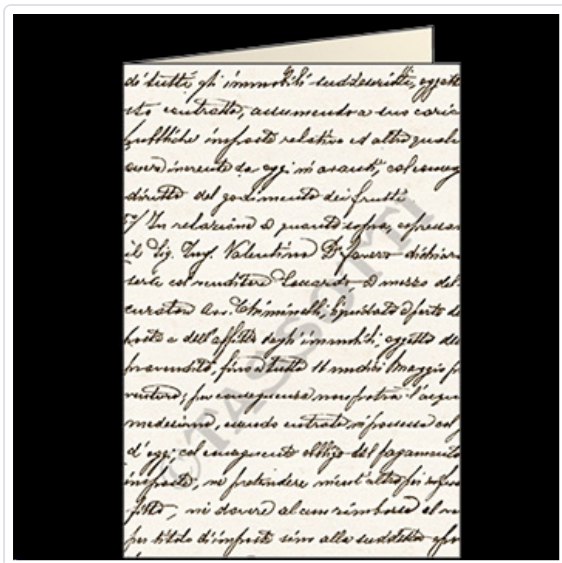 di tutti gli immobili suddescritti, oggett
sto contratto, assumendo a suo caric
pubbliche imposte relative ed altro quals
onere inerente da oggi in avanti, col conseg
diritto del godimento dei frutti
5°/ In relazione a quanto sopra, espressam
il Sig. Ing. Valentino Dr. Favero dichiara
sera col venditore Leonardo, a mezzo del
curatore Avv. Chiminelli,
poste a dell'affitto degli immobili, oggetto de
fino a tutto 11 undici Maggio p
venturo; per conseguenza non potrà l'acqui
medesimo, essendo entrato in possesso col
d'oggi; col conseguente obbligo del pagamento
imposte, ne pretendere
fitto, ni dovere alcun rimborso al
per titolo d'imposte sino alla suddetta
©TASSOTTI